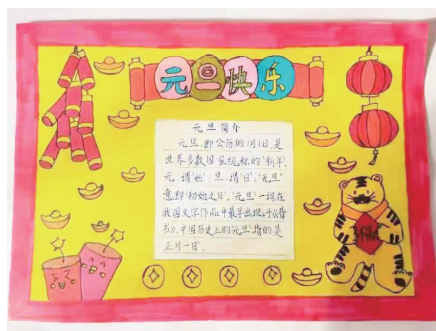 元旦快乐
元旦简介
元旦,即公历的1月1日,是
世界多数国家统称的“新年”,
元,谓“始”,旦,谓“日”,“元旦”
意即“初始之日”。“元旦”一词在
我国文学作品中最早出现于《晋
书》,中国历史上的“元旦”指的是
正月一日”。